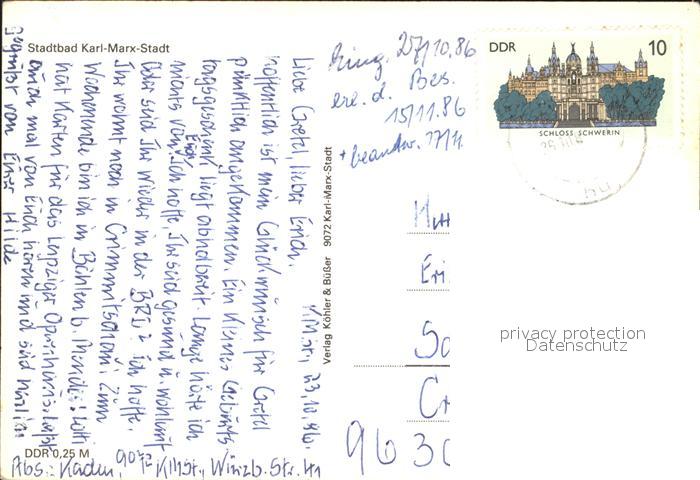 Stadtbad Karl-Marx-Stadt
K.M.St., 23.10.86.
Liebe Gretel, lieber Erich.
Hoffentlich ist mein Glückwunsch für Gretel
pünktlich angekommen. Ein kleines Geburts
tagsgeschenk liegt abholbereit. Lange hörte ich
nichts von Euch. Ich hoffe, Ihr seid gesund u. wohlauf
Oder seid Ihr wieder in der BRD? Ich hoffe,
Ihr wohnt noch in Crimmitschau. Zum
Wochenende bin ich in Böhlen b.
hat Karten für das Leipziger Opernhaus. Laßt
auch mal von Euch hören und seid herzlich
gegrüßt von Eurer Hilde
DDR 0,25 M
Abs.: Kaden, 9072 KMSt., Würzb. Str. 41
Verlag Köhler & Büßer 9072 Karl-Marx-Stadt
Eing. 27/10.86
ere. d. Bes.
15/11.86
+ beantw. 17/11
DDR 10
SCHLOSS SCHWERIN
Eri
Cr
9630
privacy protection
Datenschutz